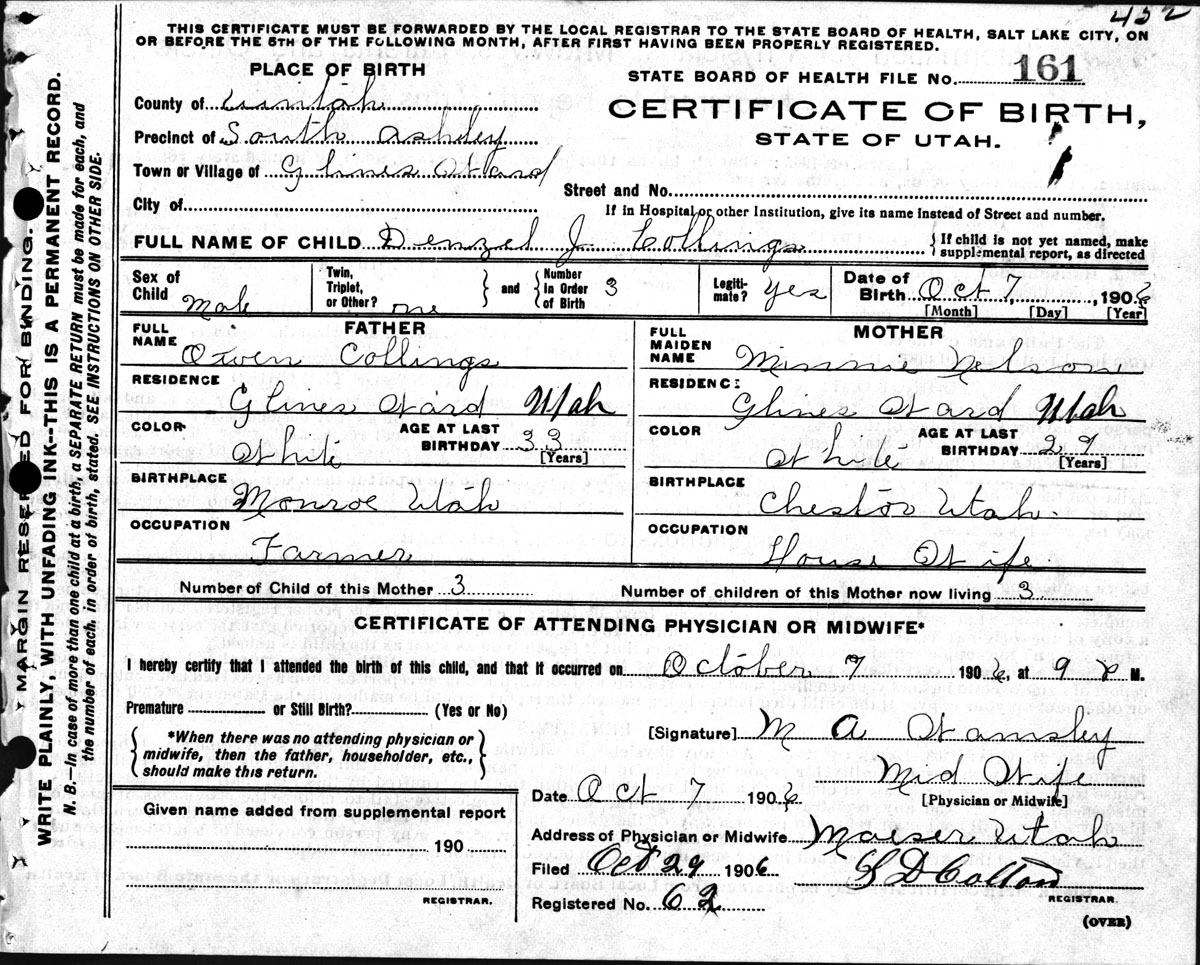 452
THIS CERTIFICATE MUST BE FORWARDED BY THE LOCAL REGISTRAR TO THE STATE BOARD OF HEALTH, SALT LAKE CITY, ON
OR BEFORE THE 5TH OF THE FOLLOWING MONTH, AFTER FIRST HAVING BEEN PROPERLY REGISTERED.
PLACE OF BIRTH
STATE BOARD OF HEALTH FILE No. 161
County of Uintah
CERTIFICATE OF BIRTH,
Precinct of South Ashley
STATE OF UTAH.
Town or Village of Glines Ward
Street and No.
City of
If in Hospital or other Institution, give its name instead of Street and number.
FULL NAME OF CHILD Denzel J Collings
{ If child is not yet named, make
supplemental report, as directed
Sex of
Child Male
Twin,
Triplet,
or Other? one
} and {
Number
in Order
of Birth 3
Legiti-
mate? Yes
Date of
Birth Oct 7, 1906
[Month] [Day] [Year]
FATHER
FULL
NAME Owen Collings
RESIDENCE Glines Ward Utah
COLOR White
AGE AT LAST
BIRTHDAY 33
[Years]
BIRTHPLACE Monroe Utah
OCCUPATION Farmer
MOTHER
FULL
MAIDEN
NAME Minnie Nelson
RESIDENCE Glines Ward Utah
COLOR White
AGE AT LAST
BIRTHDAY 29
[Years]
BIRTHPLACE Chester Utah.
OCCUPATION House Wife
Number of Child of this Mother 3
Number of children of this Mother now living 3
CERTIFICATE OF ATTENDING PHYSICIAN OR MIDWIFE*
I hereby certify that I attended the birth of this child, and that it occurred on October 7 1906, at 9 P M.
Premature or Still Birth? (Yes or No)
{ *When there was no attending physician or
midwife, then the father, householder, etc.,
should make this return. }
[Signature] M A Wamsley
Mid Wife
[Physician or Midwife]
Date Oct 7 1906
Address of Physician or Midwife Maeser Utah
Filed Oct 29 1906
S D Colton
REGISTRAR.
Registered No. 62
(OVER)
Given name added from supplemental report
190
REGISTRAR.
MARGIN RESERVED FOR BINDING.
WRITE PLAINLY, WITH UNFADING INK--THIS IS A PERMANENT RECORD.
N. B.—In case of more than one child at a birth, a SEPARATE RETURN must be made for each, and
the number of each, in order of birth, stated. SEE INSTRUCTIONS ON OTHER SIDE.